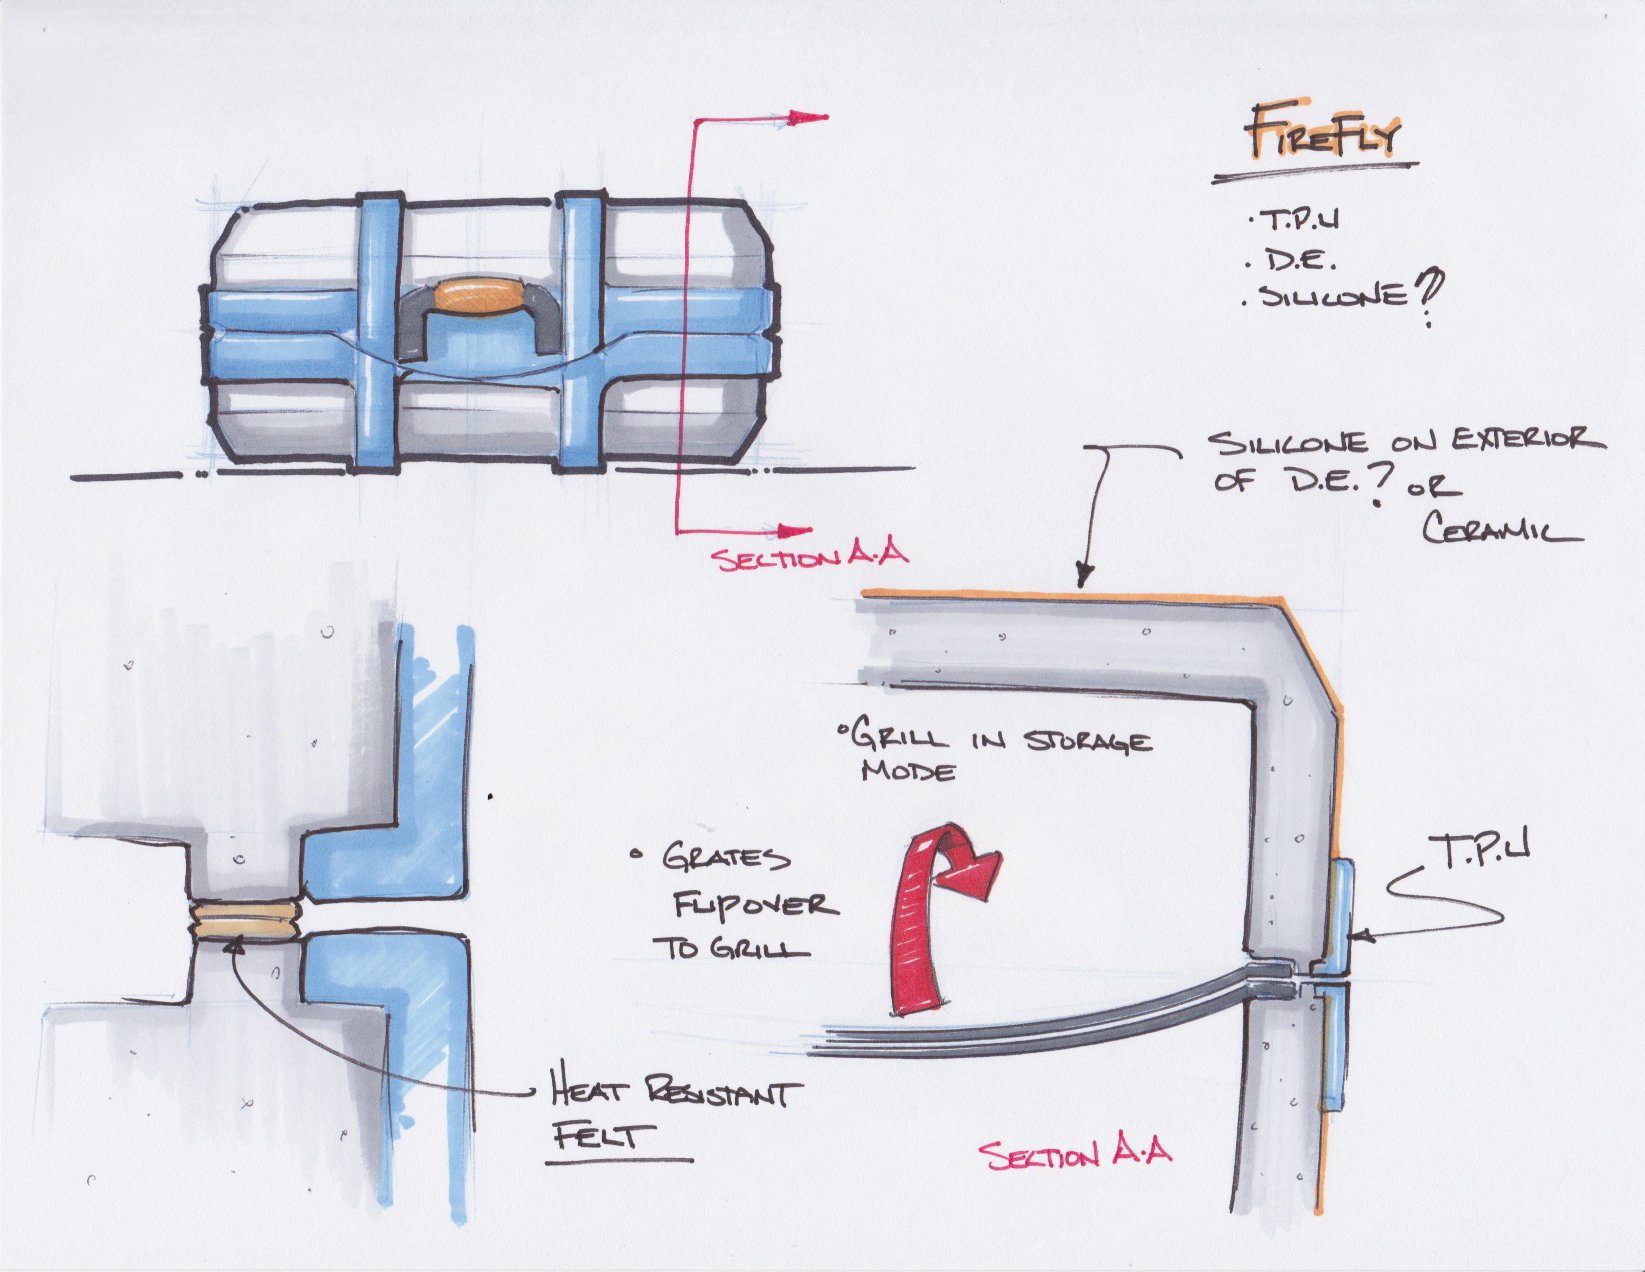 FIREFLY
· T.P.U
· D.E.
· SILICONE?
SILICONE ON EXTERIOR
OF D.E.? OR
CERAMIC
SECTION A·A
° GRILL IN STORAGE
MODE
° GRATES
FLIP OVER
TO GRILL
T.P.U
HEAT RESISTANT
FELT
SECTION A·A